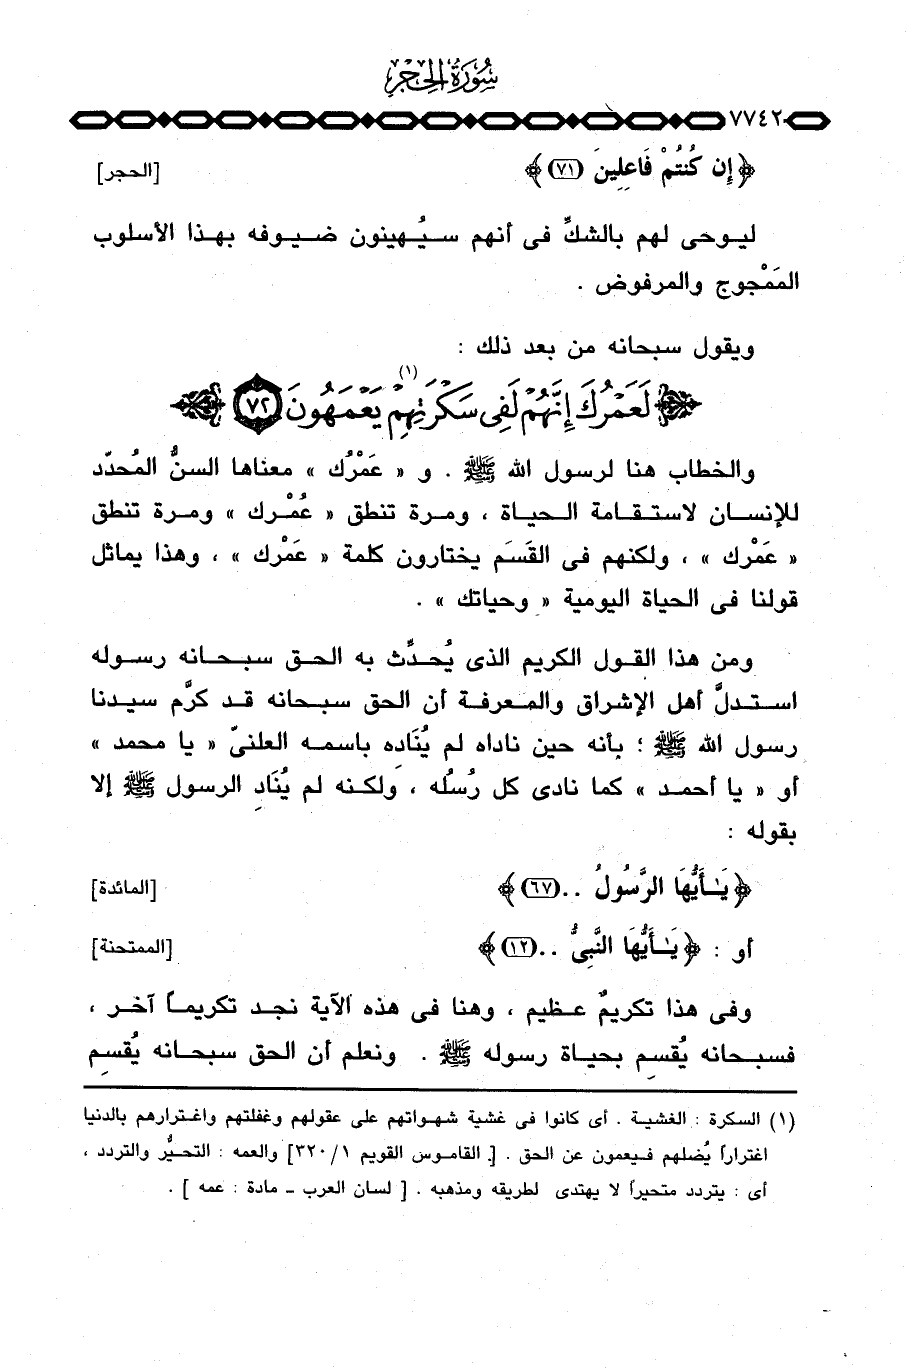 سُورَةُ الحِجْرِ
٧٧٤٢
﴿ إِن كُنتُمْ فَاعِلِينَ (٧١) ﴾ [الحجر]
ليوحى لهم بالشكِّ فى أنهم سيُهينون ضيوفه بهذا الأسلوب
المَمْجوج والمرفوض .
ويقول سبحانه من بعد ذلك :
﴿ لَعَمْرُكَ إِنَّهُمْ لَفِى سَكْرَتِهِمْ (١) يَعْمَهُونَ ٧٢ ﴾
والخطاب هنا لرسول الله ﷺ . و « عَمْرُك » معناها السنُّ المُحدّد
للإنسان لاستقامة الحياة ، ومرة تنطق « عُمْرك » ومرة تنطق
« عَمْرك » ، ولكنهم فى القَسَم يختارون كلمة « عَمْرك » ، وهذا يماثل
قولنا فى الحياة اليومية « وحياتك » .
ومن هذا القول الكريم الذى يُحدِّث به الحق سبحانه رسوله
استدلَّ أهل الإشراق والمعرفة أن الحق سبحانه قد كرَّم سيدنا
رسول الله ﷺ ؛ بأنه حين ناداه لم يُنَادِه باسمه العلنىّ « يا محمد »
أو « يا أحمد » كما نادى كل رُسُله ، ولكنه لم يُنَادِ الرسول ﷺ إلا
بقوله :
﴿ يَـٰأَيُّهَا الرَّسُولُ .. (٦٧) ﴾ [المائدة]
أو : ﴿ يَـٰأَيُّهَا النَّبِىُّ .. (١٢) ﴾ [الممتحنة]
وفى هذا تكريمٌ عظيم ، وهنا فى هذه الآية نجد تكريماً آخر ،
فسبحانه يُقسِم بحياة رسوله ﷺ . ونعلم أن الحق سبحانه يُقسِم
(١) السكرة : الغشية . أى كانوا فى غشية شهواتهم على عقولهم وغفلتهم واغترارهم بالدنيا
اغتراراً يُضلهم فيعمون عن الحق . [ القاموس القويم ٣٢٠/١] والعمه : التحيُّر والتردد ،
أى : يتردد متحيراً لا يهتدى لطريقه ومذهبه . [ لسان العرب - مادة : عمه ] .